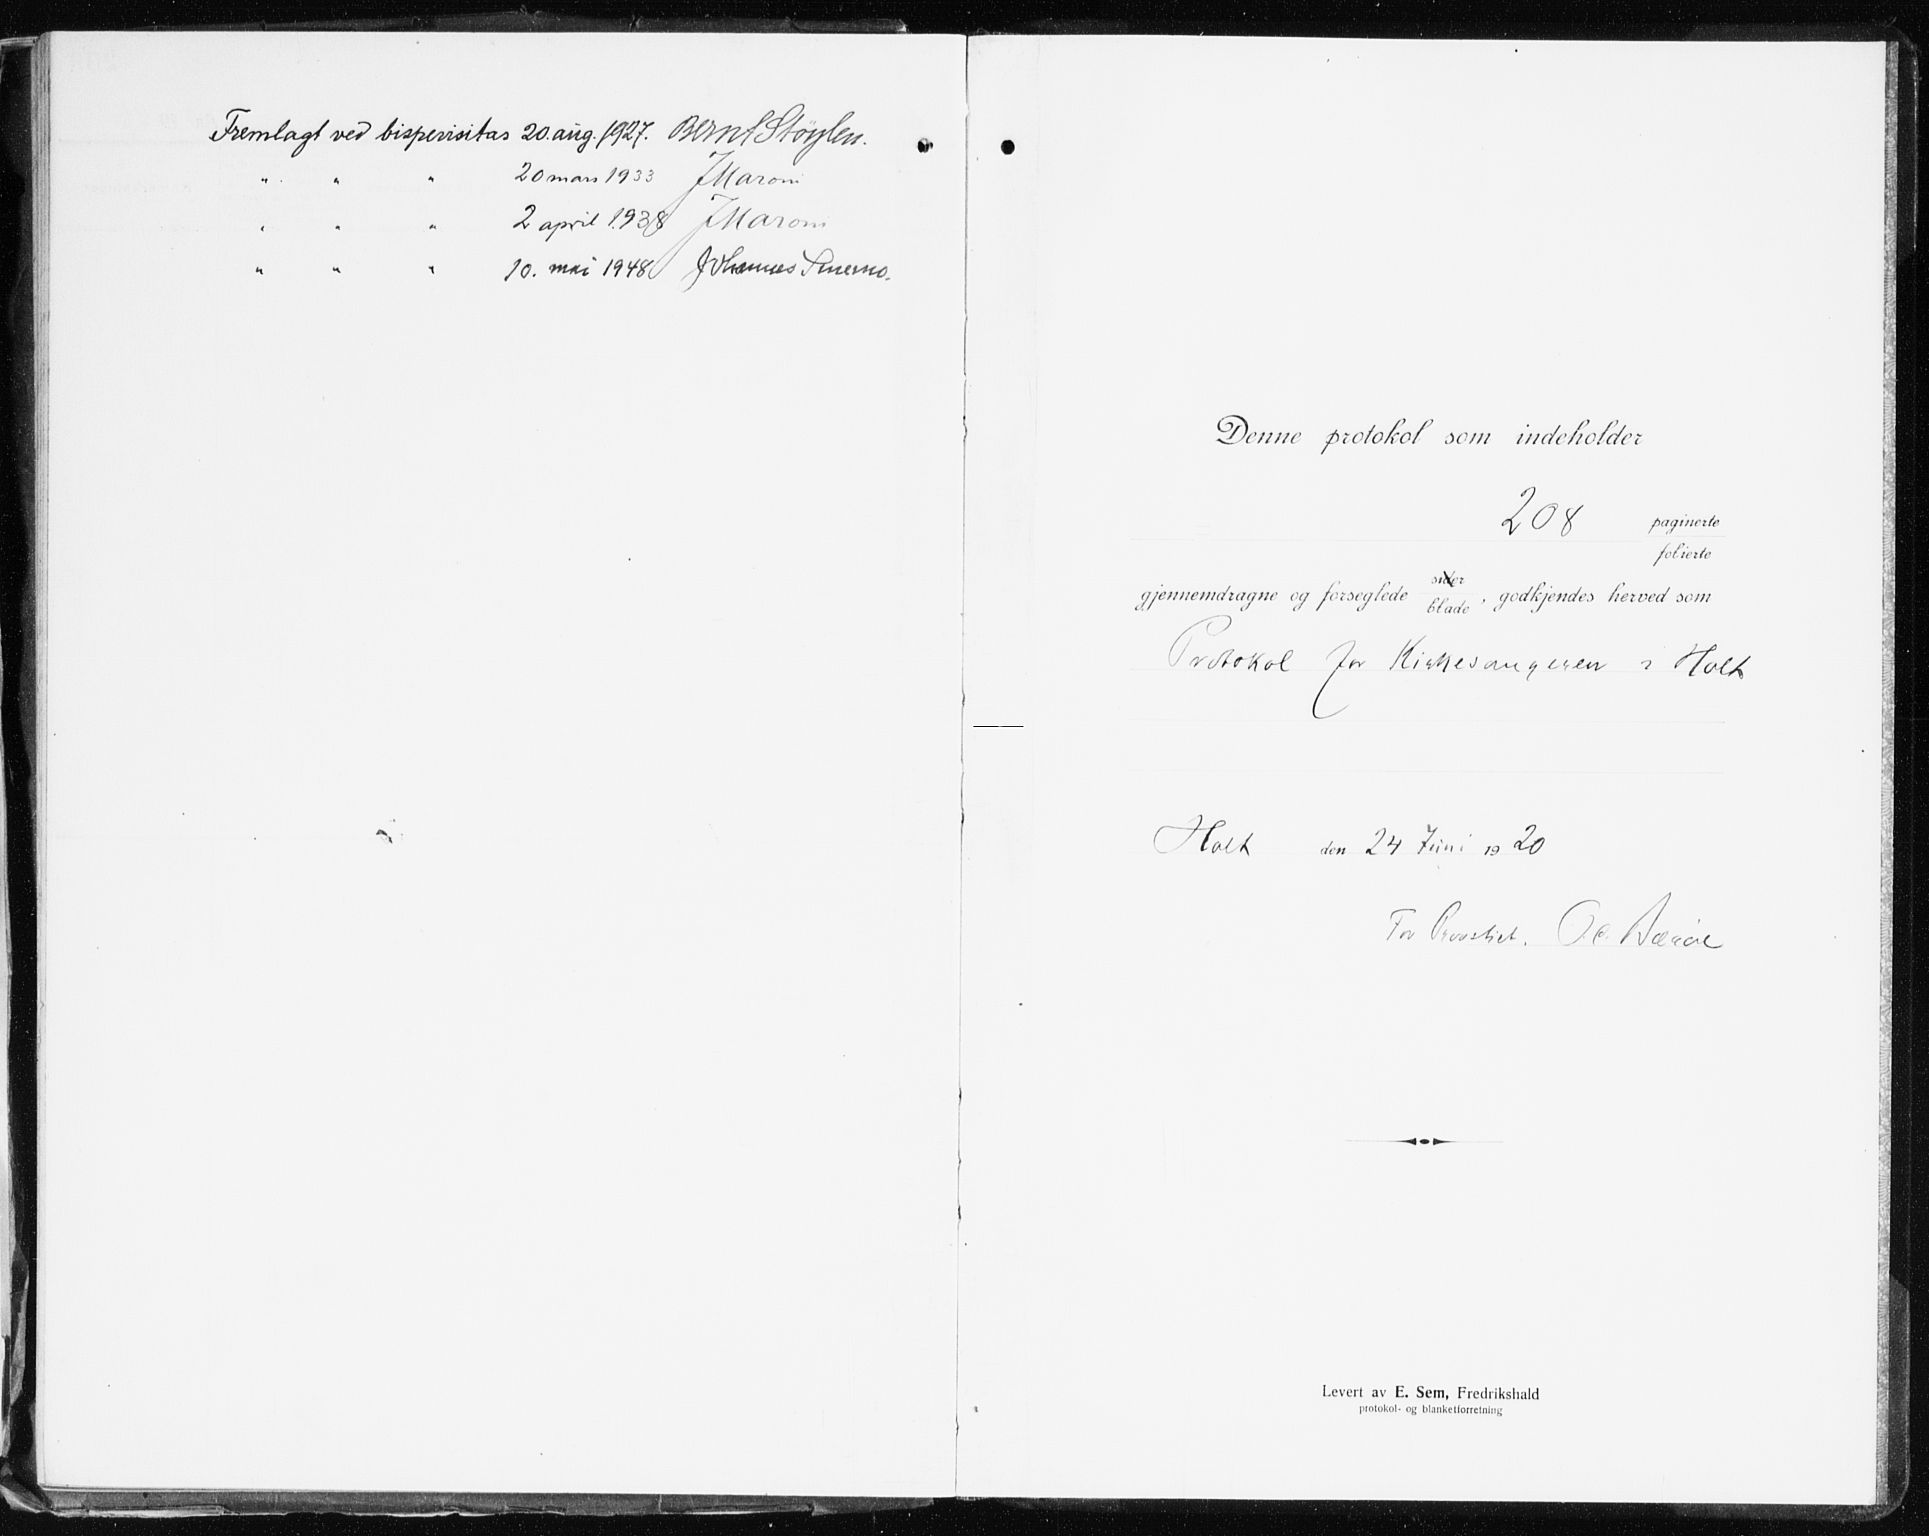 Fremlagt ved bispevisitas 20. aug. 1927. Bernt Støylen.
" " " 20 mars 1933 J Maroni
" " " 2 april 1938 J Maroni
" " " 10. mai 1948 Johannes Smemo.
Denne protokol som indeholder
208 paginerte
folierte
sider
gjennemdragne og forseglede blade, godkjendes herved som
Protokol for Kirkesangeren i Holt
Holt den 24 Juni 1920
For Provstiet.
Levert av E. Sem, Fredrikshald
protokol- og blanketforretning